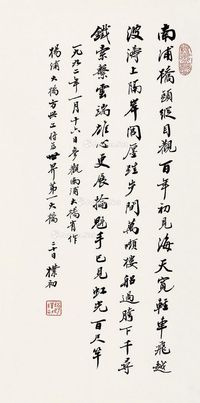 南浦橋頭縱目觀百年初見海天寬輕車飛越
波濤上隔岸閭屋跬步間萬頃樓船過胯下千尋
鐵索繫雲端雄心更展掄魁手已見虹光百尺竿
一九九二年一月十六日參觀南浦大橋有作
楊浦大橋方興工將為世界第一大橋
日 樸初